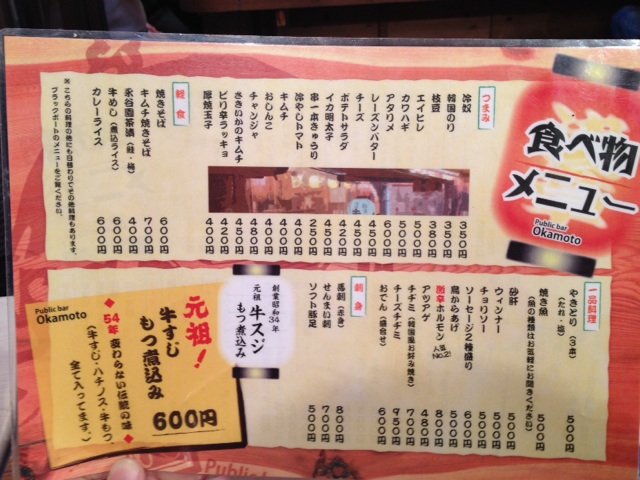 食べ物
メニュー
Public bar
Okamoto
つまみ
冷奴 350円
韓国のり 350円
枝豆 380円
エイヒレ 500円
カワハギ 500円
アタリメ 600円
レーズンバター 450円
チーズ 450円
ポテトサラダ 420円
イカ明太子 450円
串一本きゅうり 250円
冷やしトマト 400円
キムチ 400円
おしんこ 400円
チャンジャ 480円
さきいかのキムチ 450円
ピリ辛ラッキョ 420円
厚焼玉子 400円
軽食
焼きそば 600円
キムチ焼きそば 700円
永谷園茶漬(鮭・梅) 400円
牛めし(煮込ライス) 600円
カレーライス 600円
※こちらの料理の他にも日替わりでその他料理もあります。
ブラックボードのメニューをご覧ください。
一品料理
やきとり(3本) 500円
(たれ・塩)
焼き魚 500円
(魚の種類はお気軽にお聞きください)
砂肝 500円
ウィンナー 500円
チョリソー 500円
ソーセージ2種盛り 600円
鳥からあげ 500円
激辛ホルモン 人気No.2! 800円
アツアゲ 480円
チヂミ(韓国風お好み焼き) 700円
チーズチヂミ 950円
おでん(盛合せ) 600円
刺身
馬刺(赤身) 800円
せんまい刺 700円
ソフト豚足 500円
創業昭和34年
元祖 牛スジ
もつ煮込み
Public bar
Okamoto
元祖!
牛すじ
もつ煮込み
600円
◆54年変わらない伝統の味◆
(牛すじ・ハチノス・牛もつ
全て入ってます。)